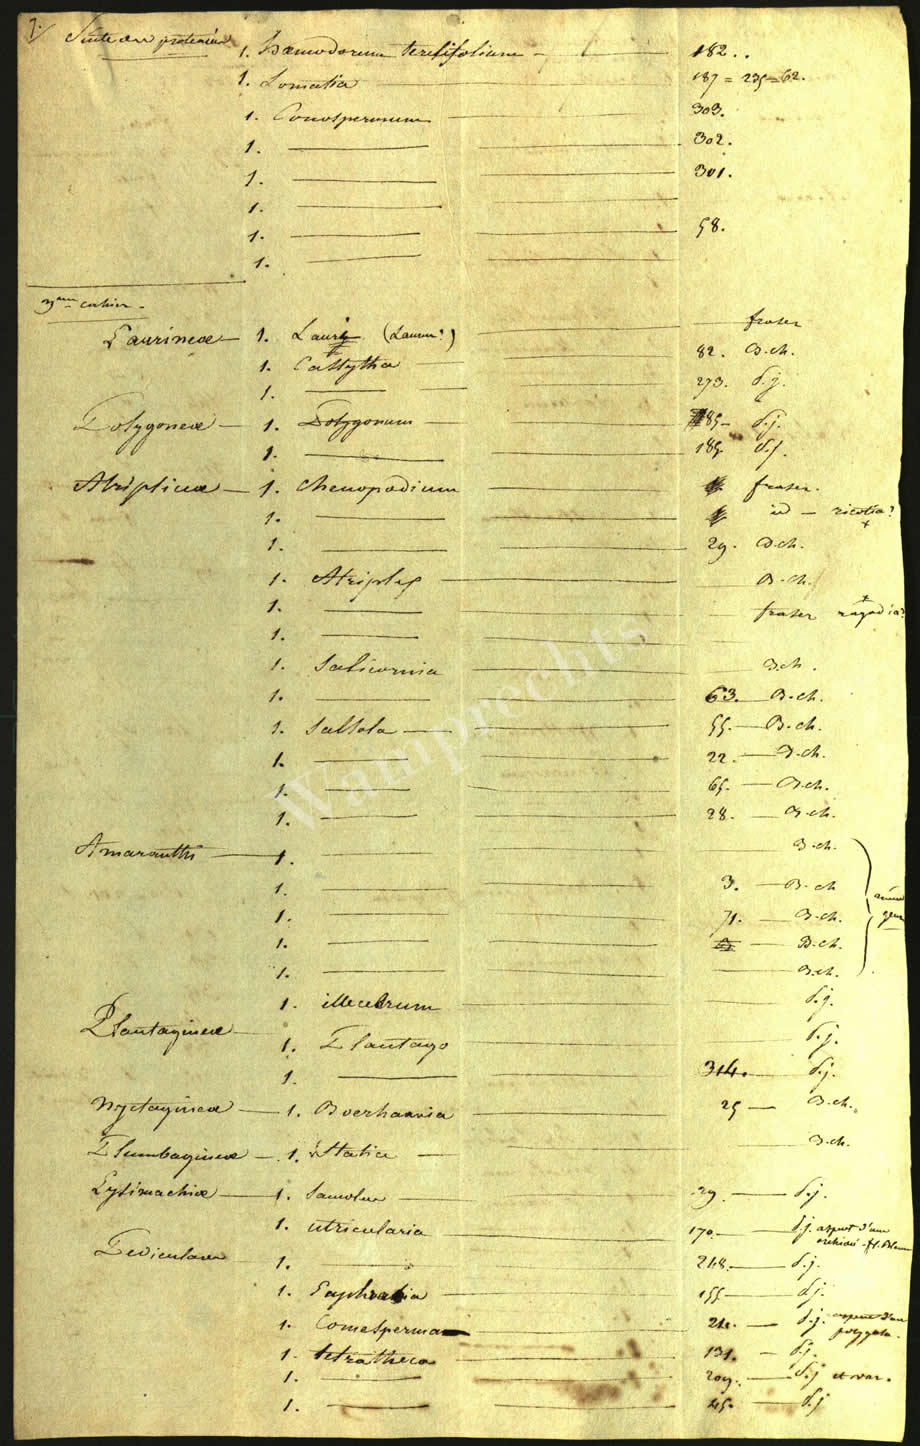 7.
Suite des proteacées 1. Haemodorum teretifolium — 182..
1. Lomatia — 187 = 235 = 62.
1. Conospermum — 303.
1. — 302.
1. — 301.
1. —
1. — 58.
1. —
3eme cahier.
Laurineae — 1. Laurus (Laurus?) — fraser
1. Cassytha — 82. B.ch.
1. — 273. S.j.
Polygoneae — 1. Polygonum — 185 — S.j.
1. — 189. S.j.
Atriplicae — 1. Chenopodium — fraser.
1. — id —
1. — 29. B.ch.
1. Atriplex — B.ch.
1. — fraser ragodia?
1. —
1. Salicornia — B.ch.
1. — 63. B.ch.
1. Salsola — 55. — B.ch.
1. — 22. — B.ch.
1. — 65. — B.ch.
1. — 28. — B.ch.
Amaranthi — 1. — B.ch.
1. — 3. — B.ch
1. — 71. — B.ch.
1. — B.ch.
1. — B.ch.
1. illecebrum — S.j.
Plantagineae — 1. Plantago — S.j.
1. — 314. — S.j.
Nyctagineae — 1. Boerhaavia — 25 — B.ch.
Plumbagineae — 1. Statice — B.ch.
Lysimachiae — 1. Samolus — 29. — S.j.
1. utricularia — 170. — S.j. aspect d'une
Pediculares 1. — 248. — S.j.
1. Euphrasia — 155 — S.j.
1. Comesperma — 24. — S.j. aspect d'un polygala.
1. tetratheca — 131. — S.j.
1. — 209. — S.j et var.
1. — 45. — S.j
Wamprechts